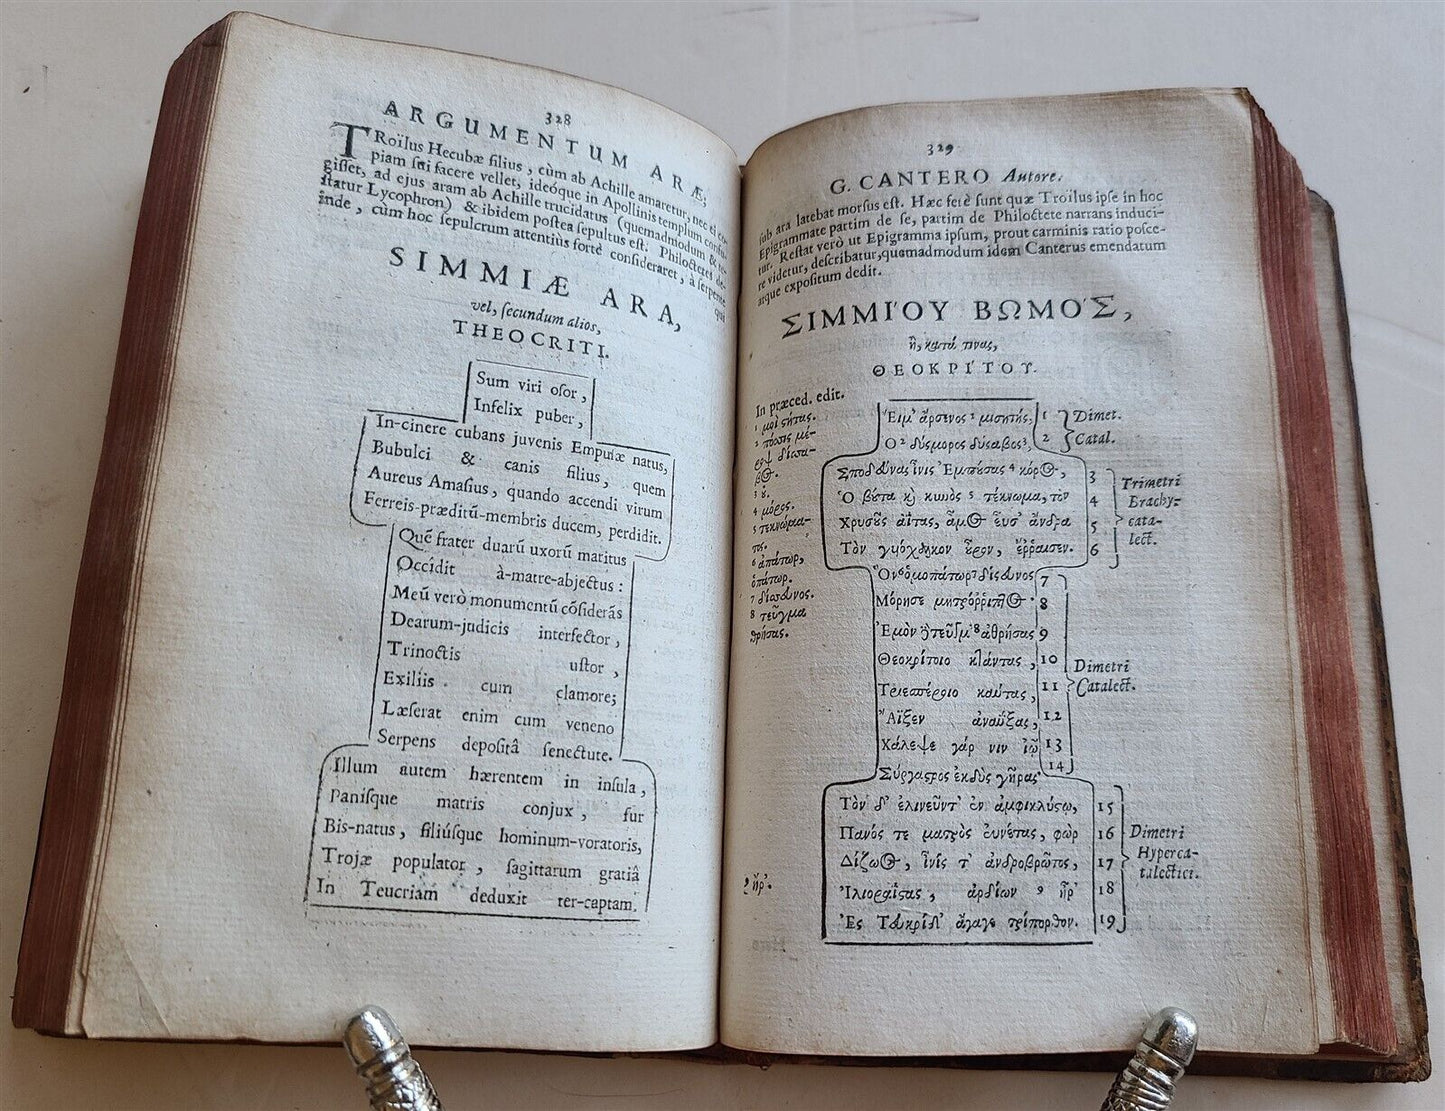 328
ARGUMENTUM ARÆ,
TRoïlus Hecubæ filius, cùm ab Achille amaretur, nec ei co-
piam sui facere vellet, ideóque in Apollinis templum confu-
gisset, ad ejus aram ab Achille trucidatus (quemadmodum & te-
statur Lycophron) & ibidem postea sepultus est. Philoctetes de-
inde, cùm hoc sepulcrum attentiùs fortè consideraret, à serpente
qui
SIMMIÆ ARA,
vel, secundum alios,
THEOCRITI.
Sum viri osor,
Infelix puber,
In-cinere cubans juvenis Empusæ natus,
Bubulci & canis filius, quem
Aureus Amasius, quando accendi virum
Ferreis-præditũ-membris ducem, perdidit.
Quẽ frater duarũ uxorũ maritus
Occidit à-matre-abjectus:
Meũ verò monumentũ cõsiderãs
Dearum-judicis interfector,
Trinoctis ustor,
Exiliis cum clamore;
Læserat enim cum veneno
Serpens depositâ senectute.
Illum autem hærentem in insula,
Panisque matris conjux, fur
Bis-natus, filiúsque hominum-voratoris,
Trojæ populator, sagittarum gratiâ
In Teucriam deduxit ter-captam.
329
G. CANTERO Autore.
sub ara latebat morsus est. Hæc ferè sunt quæ Troïlus ipse in hoc
Epigrammate partim de se, partim de Philoctete narrans induci-
tur. Restat verò ut Epigramma ipsum, prout carminis ratio posce-
re videtur, describatur, quemadmodum idem Canterus emendatum
atque expositum dedit.
ΣΙΜΜΙ'ΟΥ ΒΩΜΟ'Σ,
ἢ, κατά τινας,
ΘΕΟΚΡΙ'ΤΟΥ.
In præced. edit.
1 μοὶ σήτας.
2 πόσις μέ-
3 ὁ.
4 μόρος.
5 τεκνώμα-
τος.
6 ἀπάτωρ,
ὁπάτωρ.
7 δίσδυνος.
8 τεῦγμα
θρήσας.
9 ἦρ'.
Εἰμ' ἄρσενος 1 μισητής, 1 Dimet.
Ὁ 2 δύσμορος δύσηβος 3, 2 Catal.
Σποδεύνας ἶνις Ἐμπούσας 4 κόρος, 3
Ὁ βύτα κὶ κυνὸς 5 τέκνωμα, τὸν 4
Χρυσοῦς ἀΐτας, ἆμος εὗσ' ἄνδρα 5
Τὸν γυιόχαλκον οὖρον, ἔῤῥαισεν. 6
Trimetri
Brachy-
cata-
lect.
Ὃν 6 ὁμοπάτωρ 7 δίσευνος 7
Μόρησε μητρόῤῥιπτος 8
Ἐμὸν ἢ τεῦγμ' 8 ἀθρήσας 9
Θεοκρίτοιο κλάντας, 10
Τριεσπέροιο καύτας, 11
Ἄϊξεν ἀναΰξας, 12
Χάλεψε γάρ νιν ἰῷ 13
Σύργαστρος ἐκδὺς γῆρας 14
Dimetri
Catalect.
Τὸν δ' ἐλινεῦντ' ἐν ἀμφικλύστῳ, 15
Πανός τε ματρὸς εὐνέτας, φὼρ 16
Δίζωος, ἶνίς τ' ἀνδροβρῶτος, 17
Ἰλιοραίστας, ἀρδίων 9 ἦρ' 18
Ἐς Τευκρίδ' ἄγαγε τρίπορθον. 19
Dimetri
Hyperca-
talectici.